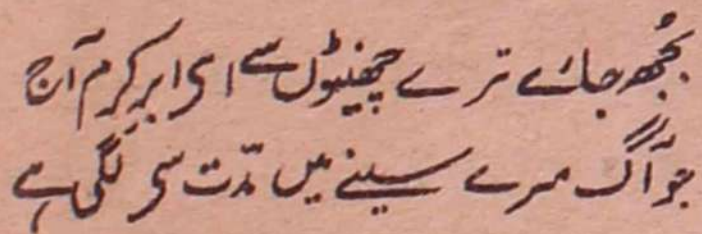 بُجھ جائے ترے چھینٹوں سے ای ابرِ کرم آج
جو آگ مرے سینے میں مدّت سی لگی ہے